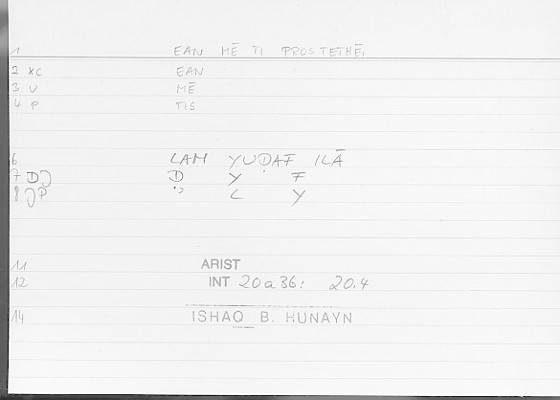 1 EAN MĒ TI PROSTETHĒI
2 XC EAN
3 V MĒ
4 P TIS
6 LAM YUḌAF ILĀ
7 DJ Ḍ Y F
8 JP L Y
11 ARIST
12 INT 20a36: 20.4
14 ISHAQ B. HUNAYN